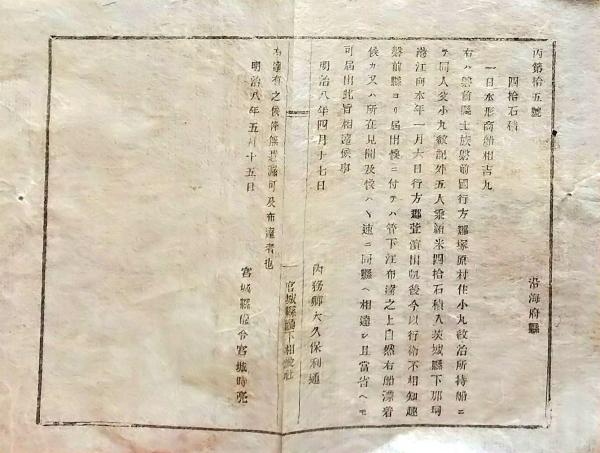 丙第拾五號
沿海府縣
四拾石積
一日本形商船相吉丸
右ハ磐前縣士族磐前國行方郡塚原村住小丸政治所持船ニ
テ同人父小丸 外五人乘組米四拾石積入茨城縣下那珂
港江向本年一月六日行方郡 濱出帆後今以行衛不相知趣
磐前縣ヨリ届出候ニ付テハ管下江布達之上自然右船漂着
候カ又ハ所在見聞及候ハヽ速ニ同縣ヘ相達シ且當省ヘモ
可届出此旨相達候事
明治八年四月十七日
内務卿大久保利通
右達有之候條無遺漏可及布達者也
明治八年五月十五日
宮城縣權令宮城時亮